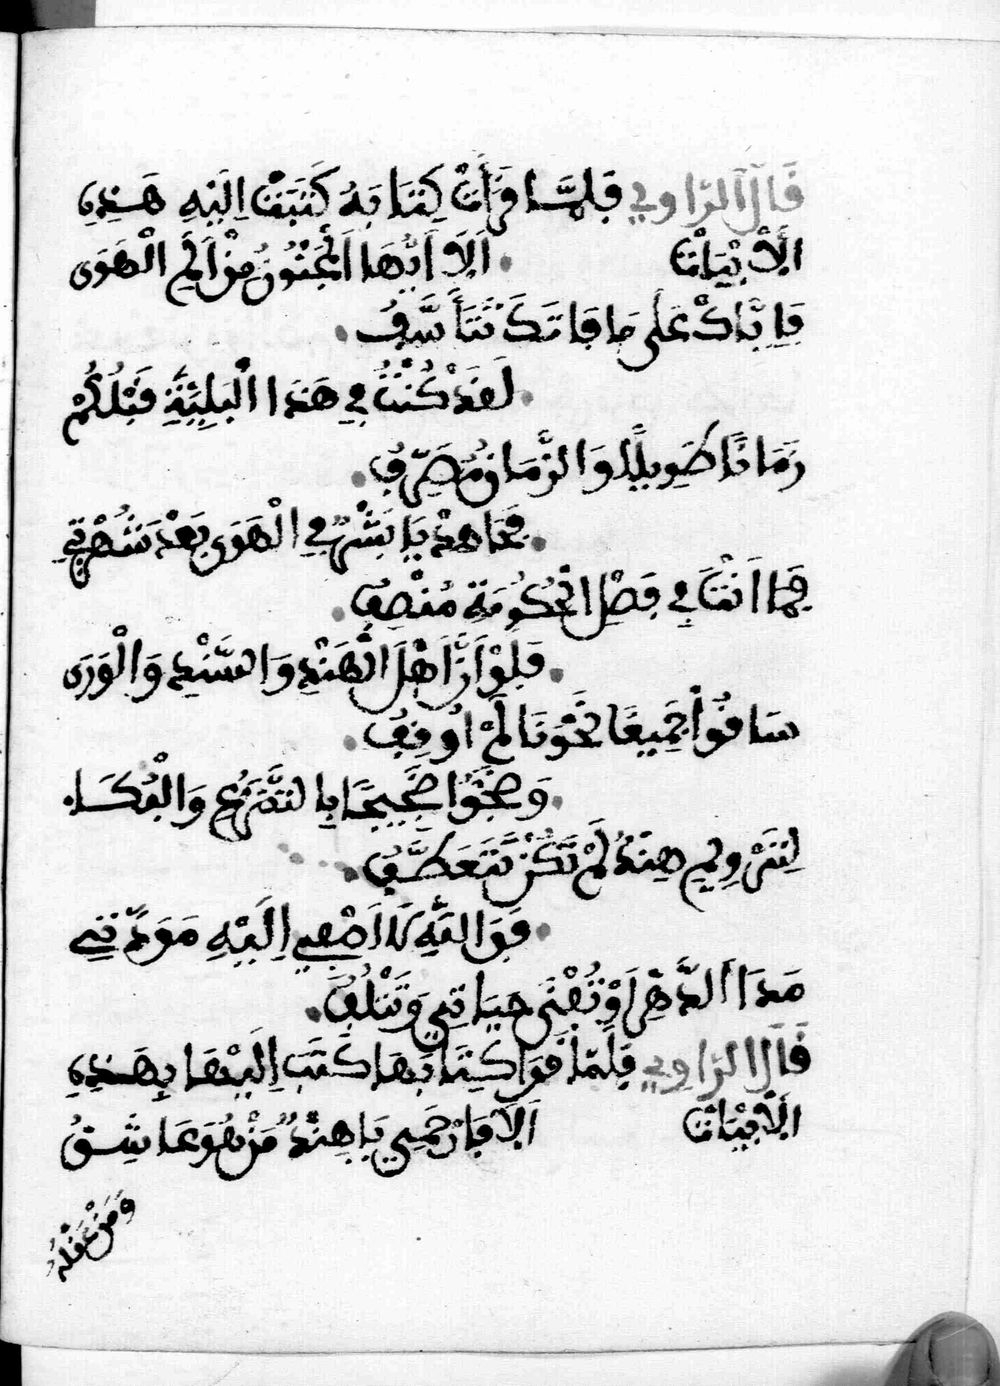 قَالَ الرَّاوِي فَلَمَّا قَرَأَتْ كِتَابَهُ كَتَبَتْ اِلَيْهِ هَذِهِ
الْأَبْيَاتَ اَلَا اَيُّهَا الْمَجْنُونُ مِنْ اَلَمِ الْهَوَى
فَاِنَّكَ عَلَى مَا فَاتَكَ تَتَأَسَّفُ
لَقَدْ كُنْتُ فِي هَذَا الْبَلِيَّةِ قَبْلَكُمْ
زَمَانًا طَوِيلًا وَالزَّمَانُ مُصَرِّفُ
فَجَاهِدْ يَا بِشْرُ فِي الْهَوَى بَعْدَ شُهْرَتِي
فَمَا اَنْتَ فِي فَصْلِ الْحُكُومَةِ مُنْصِفُ
فَلَوْ اَنَّ اَهْلَ الْهِنْدِ وَالسِّنْدِ وَالْوَرَى
سَاقُوا جَمِيعًا نَحْوَنَا لَمْ اُوقِفُ
وَضَجُّوا ضَجِيجًا بِالتَّضَرُّعِ وَالْبُكَاءِ
لِتَرْوِي هِنْدُ لَمْ تَكُنْ تَتَعَطَّفُ
فَوَاللَّهِ لَا اَصْغِي اِلَيْهِ مَوَدَّتِي
مَدَا الدَّهْرِ اَوْ تُفْنَى حَيَاتِي وَتَتْلُفُ
قَالَ الرَّاوِي فَلَمَّا قَرَا كِتَابَهَا كَتَبَ اِلَيْهَا بِهَذِهِ
الْأَبْيَاتَ اَلَا فَارْحَمِي يَا هِنْدُ مَنْ هُوَ عَاشِقُ
وَمَنْ عَقْلُهُ